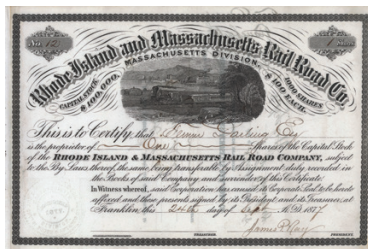 No. 12
1 Share
Rhode Island and Massachusetts Rail Road Co.
MASSACHUSETTS DIVISION.
CAPITAL STOCK $100,000.
1000 SHARES $100 EACH.
This is to Certify, that Darling Esq
is the proprietor of One Shares of the Capital Stock
of the RHODE ISLAND & MASSACHUSETTS RAIL ROAD COMPANY, subject
to the By Laws thereof, the same being transferable by Assignment duly recorded in
the Books of said Company on surrender of this Certificate.
In Witness whereof, said Corporation has caused its Corporate Seal to be hereto
affixed and these presents signed by its President and its Treasurer, at
Franklin this 24th day of Sept 1877
James P. Ray
TREASURER.
PRESIDENT.